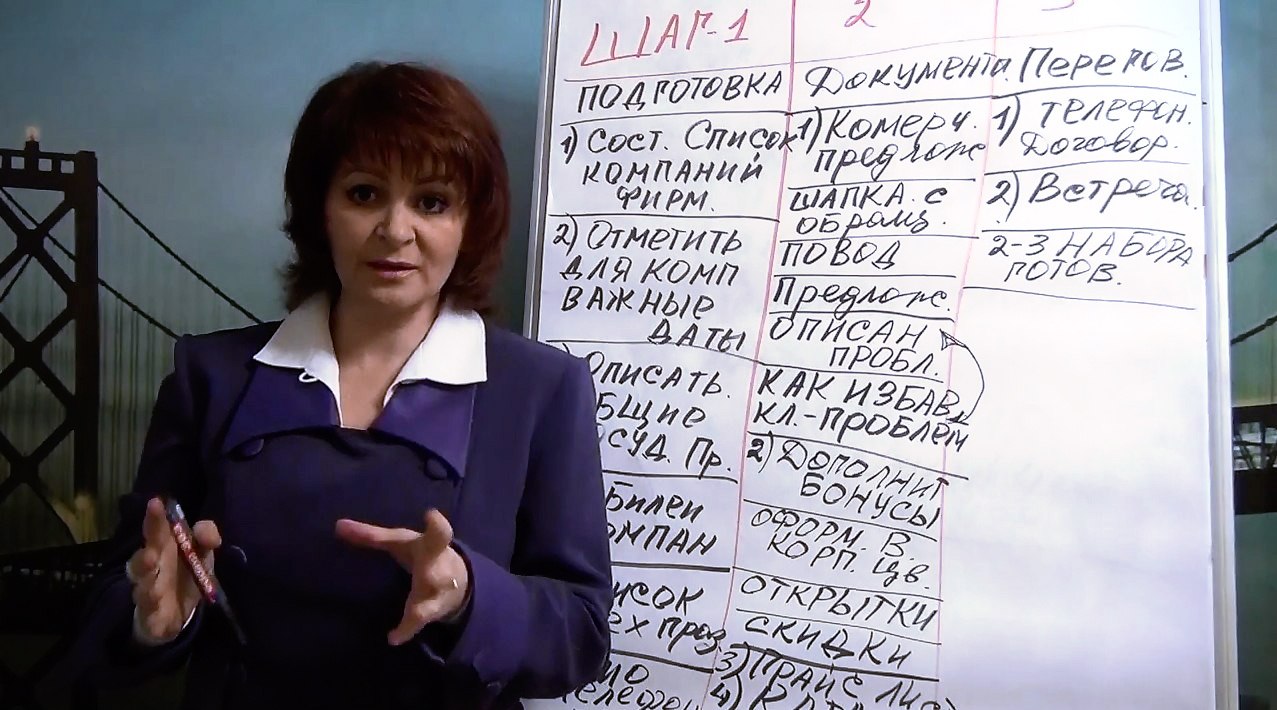 ШАГ-1
ПОДГОТОВКА
1) СОСТ. СПИСОК
КОМПАНИЙ
ФИРМ.
2) ОТМЕТИТЬ
ДЛЯ КОМП
ВАЖНЫЕ
ДАТЫ
ОПИСАТЬ.
БЩИЕ
СУД. ПР.
БИЛЕИ
МПАН
ИСОК
ЕХ ПРОЗ
ТЕЛЕФОН
2
ДОКУМЕНТЫ
1) КОМЕРЧ.
ПРЕДЛОЖ
ШАПКА. С
ОБРАЩ.
ПОВОД
ПРЕДЛОЖ.
ОПИСАН
ПРОБЛ.
КАК ИЗБАВ
КЛ.-ПРОБЛЕМ
2) ДОПОЛНИТ
БОНУСЫ
ОФОРМ. В.
КОРП. ЦВ.
ОТКРЫТКИ
СКИДКИ
3) ПРАЙС ЛИС
4)
ПЕРЕГОВ.
1) ТЕЛЕФОН.
ДОГОВОР.
2) ВСТРЕЧА.
2-3 НАБОРА
ГОТОВ.